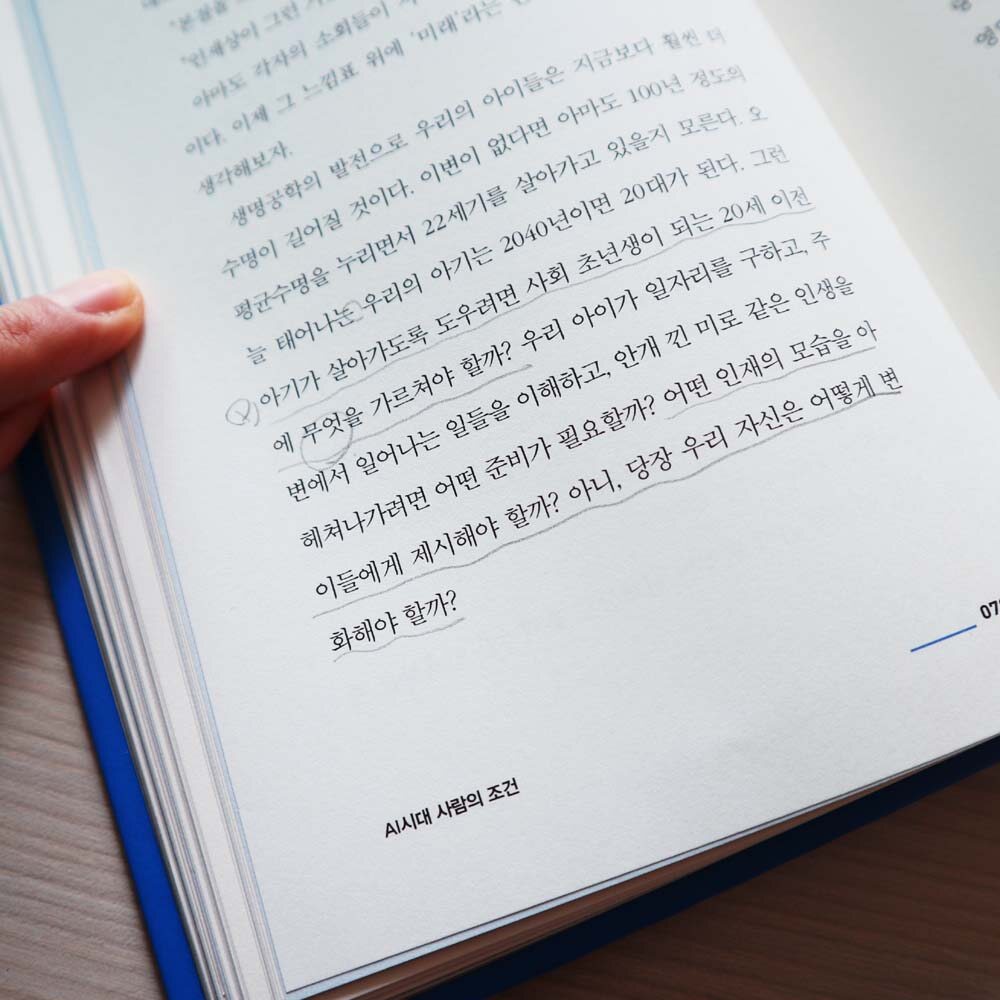 "본질을
"인세상이 그런
아마도 각자의 소회들이
이다. 이제 그 느낌표 위에 '미래'라는
생각해보자.
생명공학의 발전으로 우리의 아이들은 지금보다 훨씬 더
수명이 길어질 것이다. 이변이 없다면 아마도 100년 정도의
평균수명을 누리면서 22세기를 살아가고 있을지 모른다. 오
늘 태어나는 우리의 아기는 2040년이면 20대가 된다. 그런
아기가 살아가도록 도우려면 사회 초년생이 되는 20세 이전
에 무엇을 가르쳐야 할까? 우리 아이가 일자리를 구하고, 주
변에서 일어나는 일들을 이해하고, 안개 낀 미로 같은 인생을
헤쳐나가려면 어떤 준비가 필요할까? 어떤 인재의 모습을 아
이들에게 제시해야 할까? 아니, 당장 우리 자신은 어떻게 변
화해야 할까?
AI시대 사람의 조건